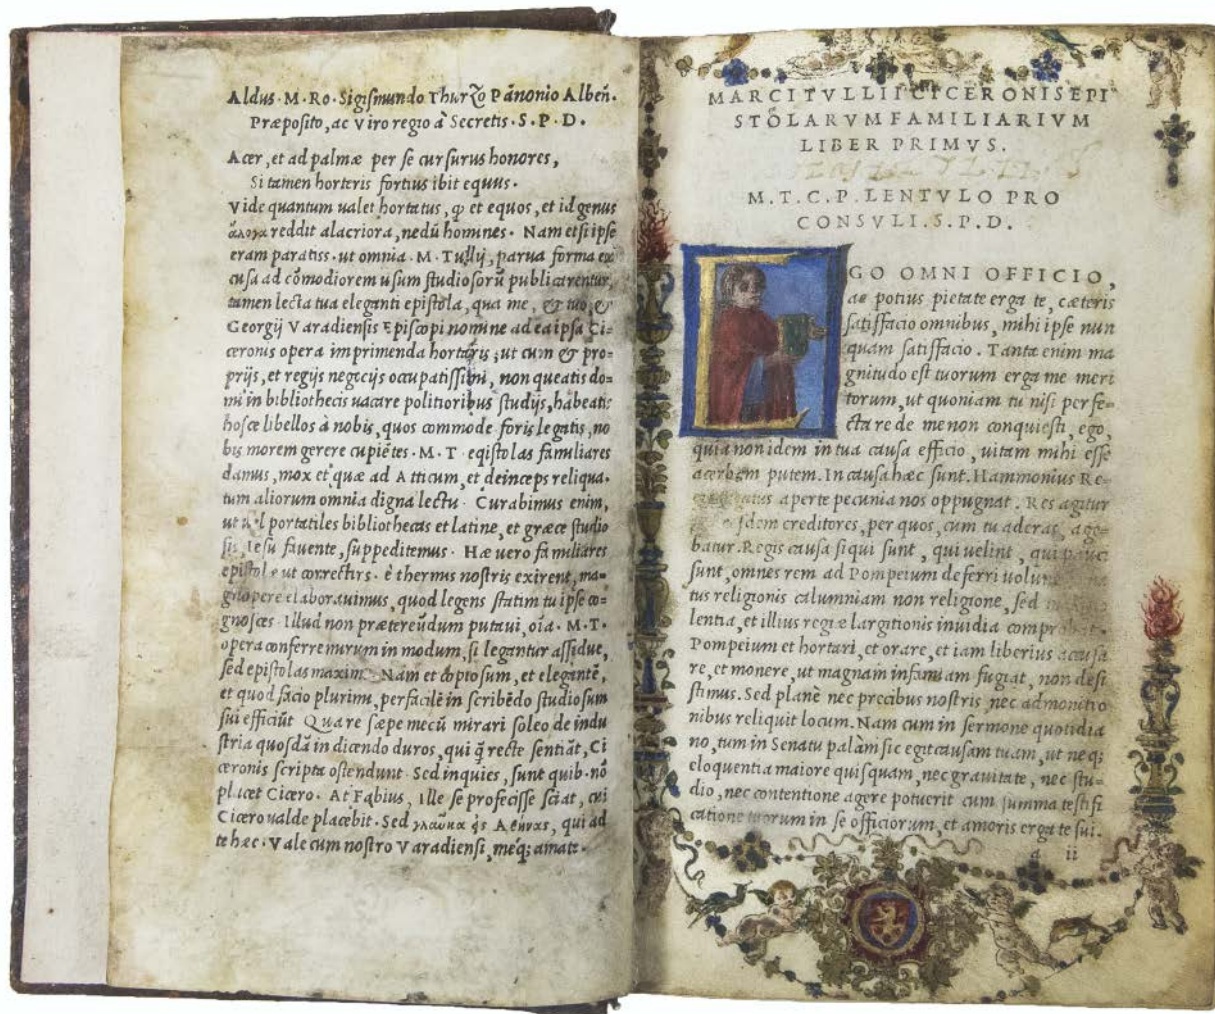 Aldus·M·Ro·Sigismundo Thurzo Pãnonio Albeñ·
Præposito, ac Viro regio à Secretis·S·P·D·
Acer, et ad palmæ per se cursurus honores,
Si tamen horteris fortius ibit equus·
Vide quantum ualet hortatus, ꝙ et equos, et id genus
ἄλογα reddit alacriora, nedũ homines· Nam etsi ipse
eram paratiss·ut omnia·M·Tullij, parua forma ex
cusa ad cõmodiorem usum studiosorũ publicarentur,
tamen lecta tua eleganti epistola, qua me, & tuo, &
Georgij Varadiensis Episcopi nomine ad ea ipsa Ci=
ceronis opera imprimenda hortaris; ut cum & pro=
prijs, et regijs negocijs occupatissimi, non queatis do=
mi in bibliothecis uacare politioribus studijs, habeatis
hosce libellos à nobis, quos commode foris legatis, no
bis morem gerere cupiẽtes·M·T·epistolas familiares
damus, mox et quæ ad Atticum, et deinceps reliqua·
tum aliorum omnia digna lectu· Curabimus enim,
ut uel portatiles bibliothecas et latine, et græce studio
sis, Iesu fauente, suppeditemus· Hæ uero familiares
epistolæ ut correctiss·è thermis nostris exirent, ma=
gnopere elaborauimus, quod legens statim tu ipse co=
gnosces· Illud non prætereũdum putaui, oĩa·M·T·
opera conferre mirum in modum, si legantur assidue,
sed epistolas maxime· Nam et copiosum, et elegantẽ,
et quod facio plurimi, perfacilè in scribẽdo studiosum
sui efficiũt· Quare sæpe mecũ mirari soleo de indu
stria quosdã in dicendo duros, qui ꝗ̃ recte sentiãt, Ci
ceronis scripta ostendunt· Sed inquies, sunt quib·nõ
placet Cicero· At Fabius, Ille se profecisse sciat, cui
Cicero ualde placebit· Sed γλαῦκα ἐς Αθήνας, qui ad
te hæc·Vale cum nostro Varadiensi, meq; amate·
MARCI TVLLII CICERONIS EPI
STOLARVM FAMILIARIVM
LIBER PRIMVS.
M.T.C.P.LENTVLO PRO
CONSVLI.S.P.D.
EGO OMNI OFFICIO,
ac potius pietate erga te, cæteris
satisfacio omnibus, mihi ipse nun
quam satisfacio. Tanta enim ma
gnitudo est tuorum erga me meri
torum, ut quoniam tu nisi perfe=
cta re de me non conquiesti, ego,
quia non idem in tua causa efficio, uitam mihi esse
acerbam putem. In causa hæc sunt. Hammonius Re=
gis aperte pecunia nos oppugnat. Res agitur
creditores, per quos, cum tu aderas, age=
batur. Regis causa si qui sunt, qui uelint, qui pauci
sunt, omnes rem ad Pompeium deferri uolunt
tus religionis calumniam non religione, sed
lentia, et illius regiæ largitionis inuidia comprobat.
Pompeium et hortari, et orare, et iam liberius accusa
re, et monere, ut magnam infamiam fugiat, non desi
stimus. Sed planè nec precibus nostris, nec admonitio
nibus reliquit locum. Nam cum in sermone quotidia
no, tum in Senatu palàm sic egit causam tuam, ut neq;
eloquentia maiore quisquam, nec grauitate, nec stu=
dio, nec contentione agere potuerit cum summa testifi
catione tuorum in se officiorum, et amoris erga te sui.
a ii